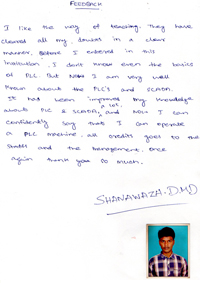 FEEDBACK
I like the way of teaching. they have
cleared all my doubts in a clear
manner, Before I entered in this
institution. I don't know even the basics
of PLC But now I am very well
known about the PLC's and SCADA.
It had been improved my knowledge
about PLC & SCADA, a lot, and now I can
confidently say that I can operate
a PLC machine. all credits goes to the
staffs and the management. Once
again thank you so much.
SHANAWAZA.D.MD